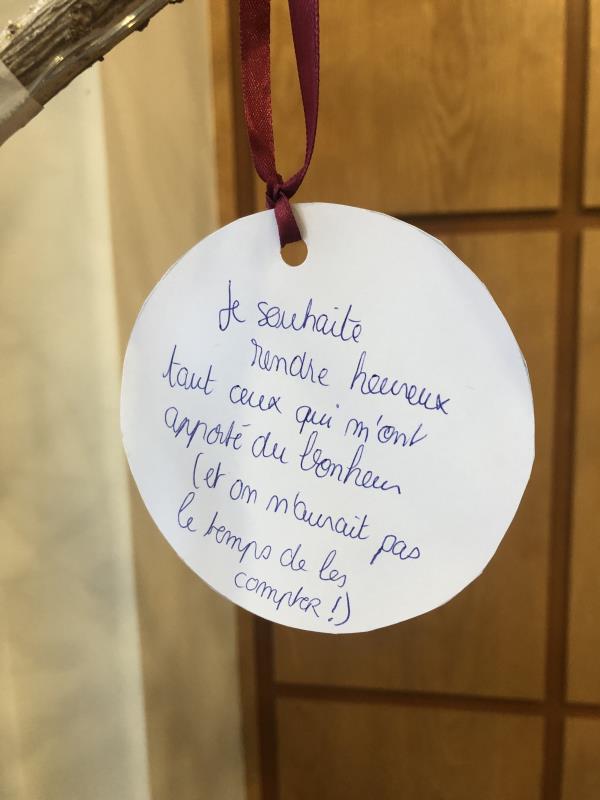 Je souhaite
rendre heureux
taut ceux qui m'ont
apporté du bonheur
(et on n'aurait pas
le temps de les
compter !)